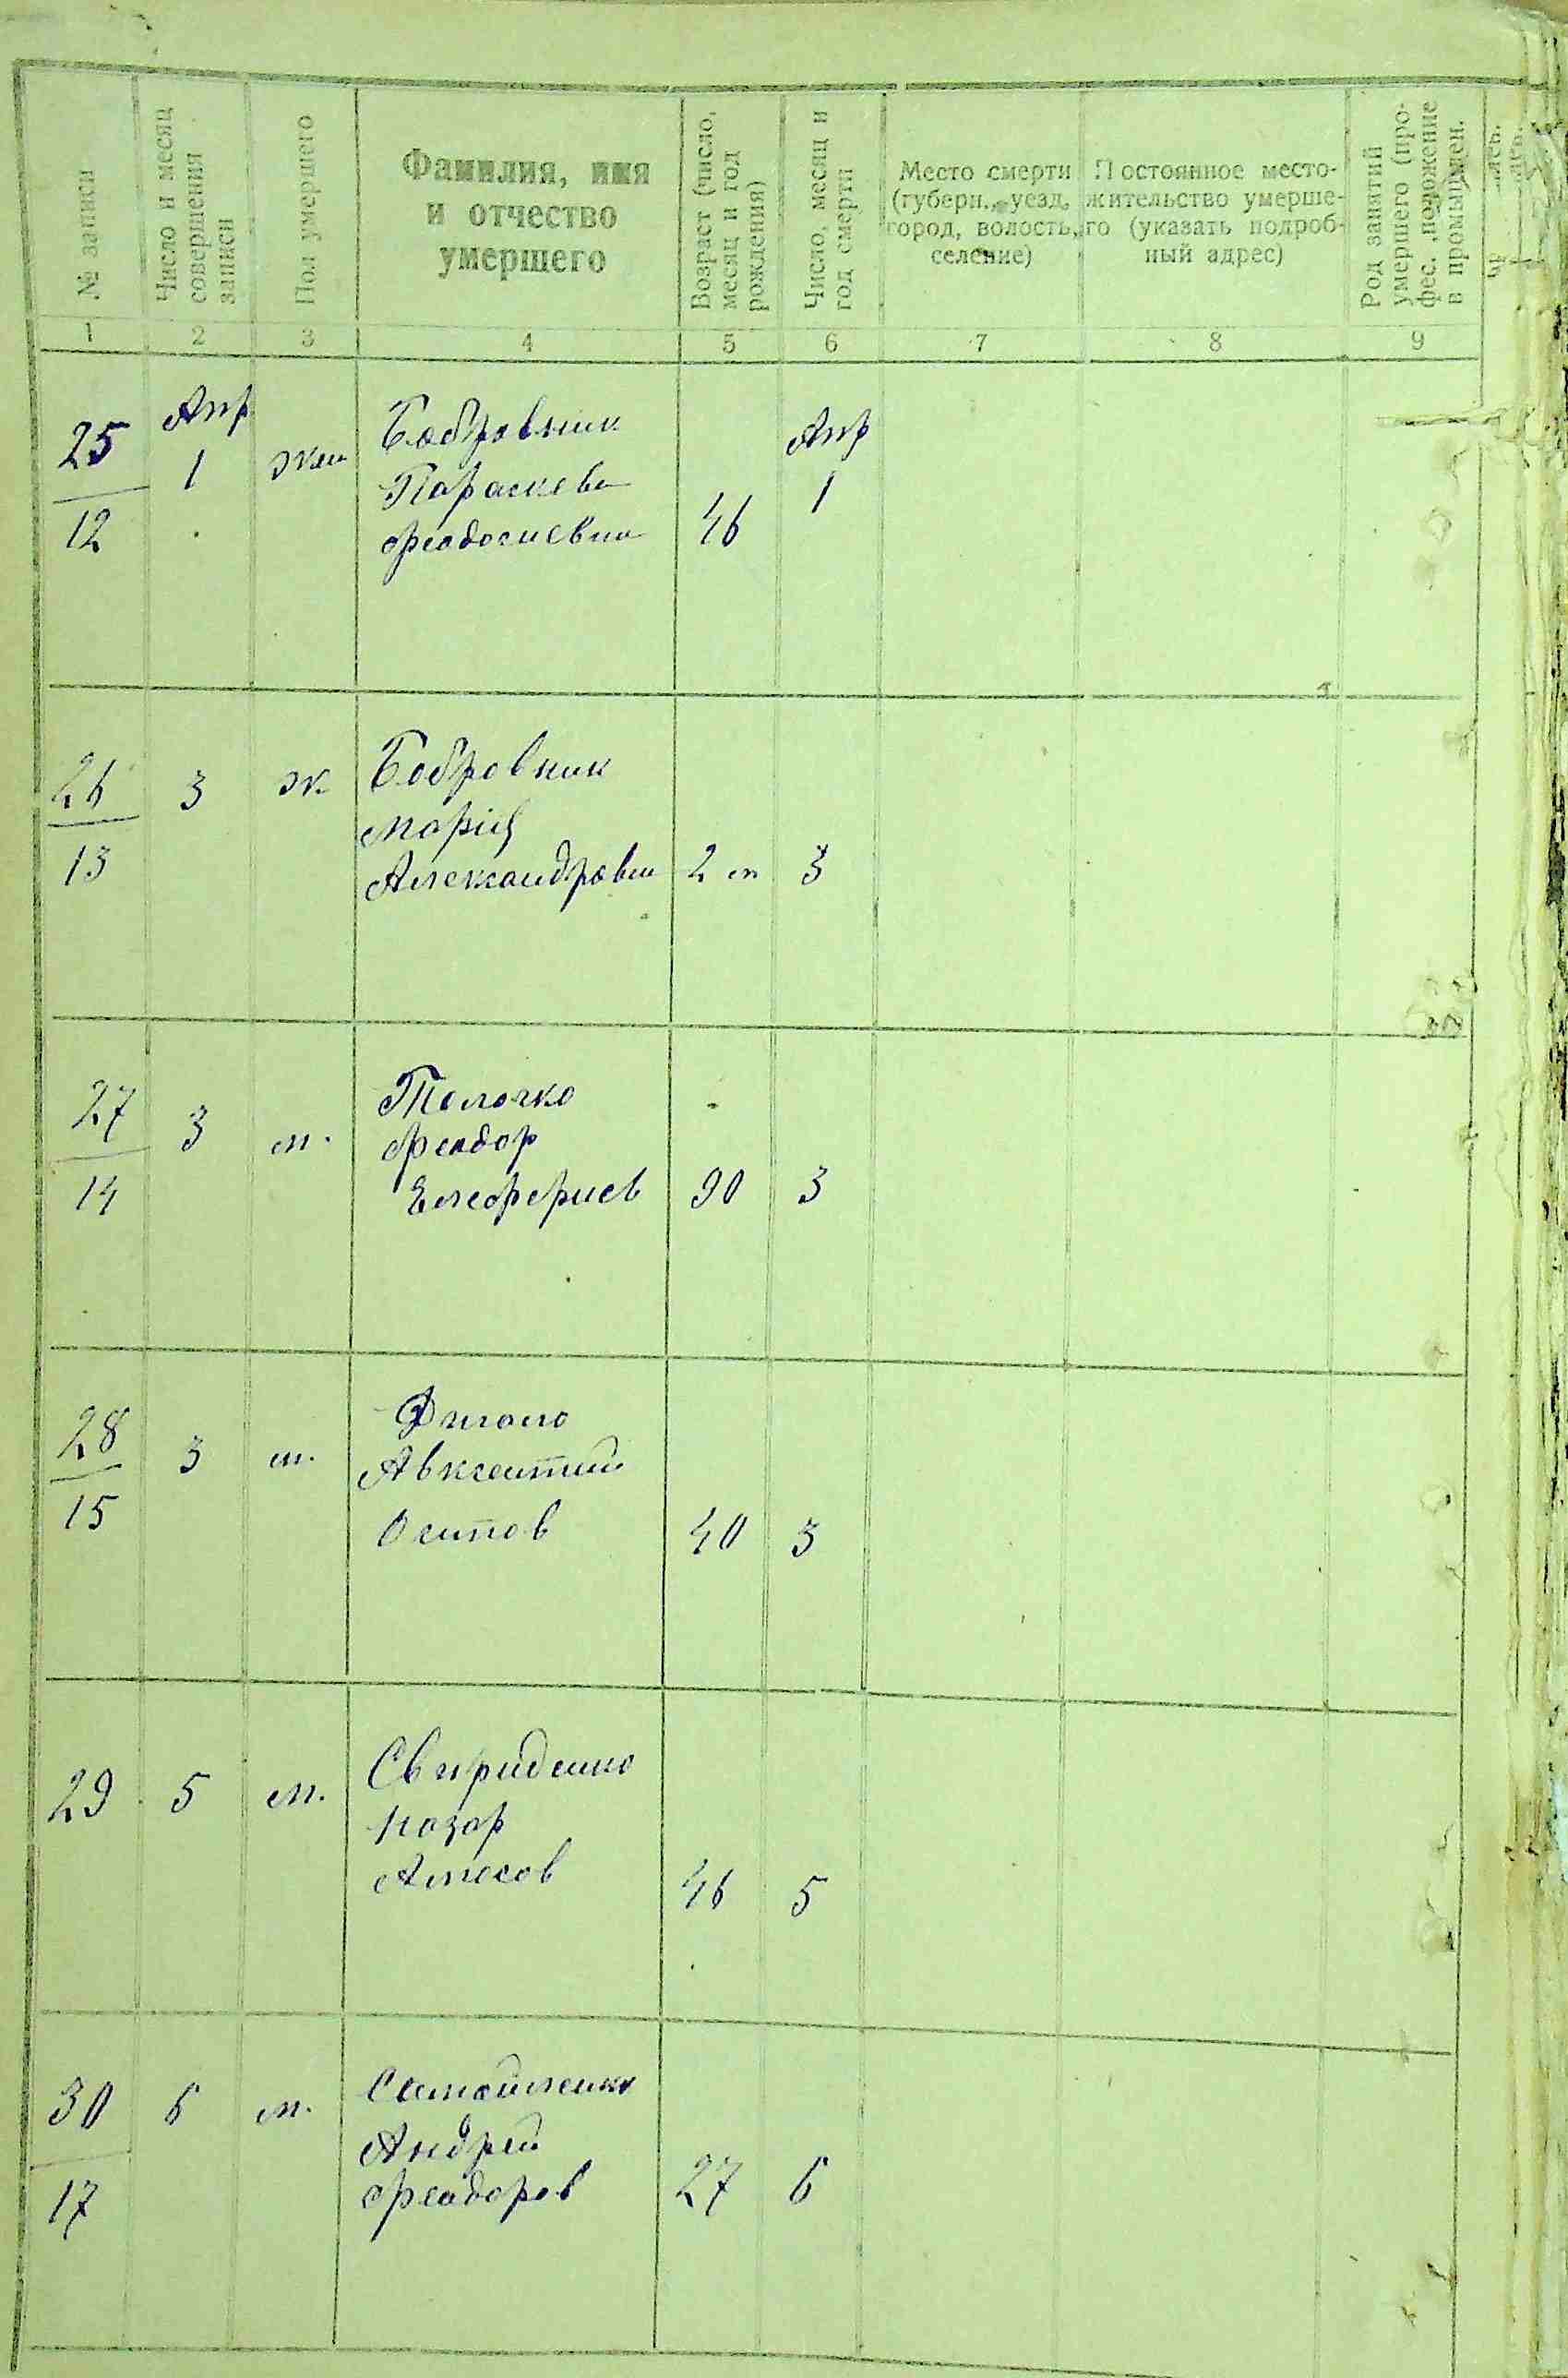 № записи
Число и месяц
совершения
записи
Пол умершего
Фамилия, имя
и отчество
умершего
Возраст (число,
месяц и год
рождения)
Число, месяц и
год смерти
Место смерти
(губерн., уезд,
город, волость,
селение)
Постоянное место-
жительство умерше-
го (указать подроб-
ный адрес)
Род занятий
умершего (про-
фес., положение
в промышлен.
1 2 3 4 5 6 7 8 9
25
12
Апр
1
жен
Бобровник
Параскева
Феодосиевна
46
Апр
1
26
13
3
ж.
Бобровник
Марія
Александровна
2 м
3
27
14
3
м.
Толочко
Феодор
Елефериев
90
3
28
15
3
м.
Авксентий
Осипов
40
3
29
5
м.
Свириденко
Назар
46
5
30
17
6
м.
Самойленко
Андрей
Феодоров
27
6